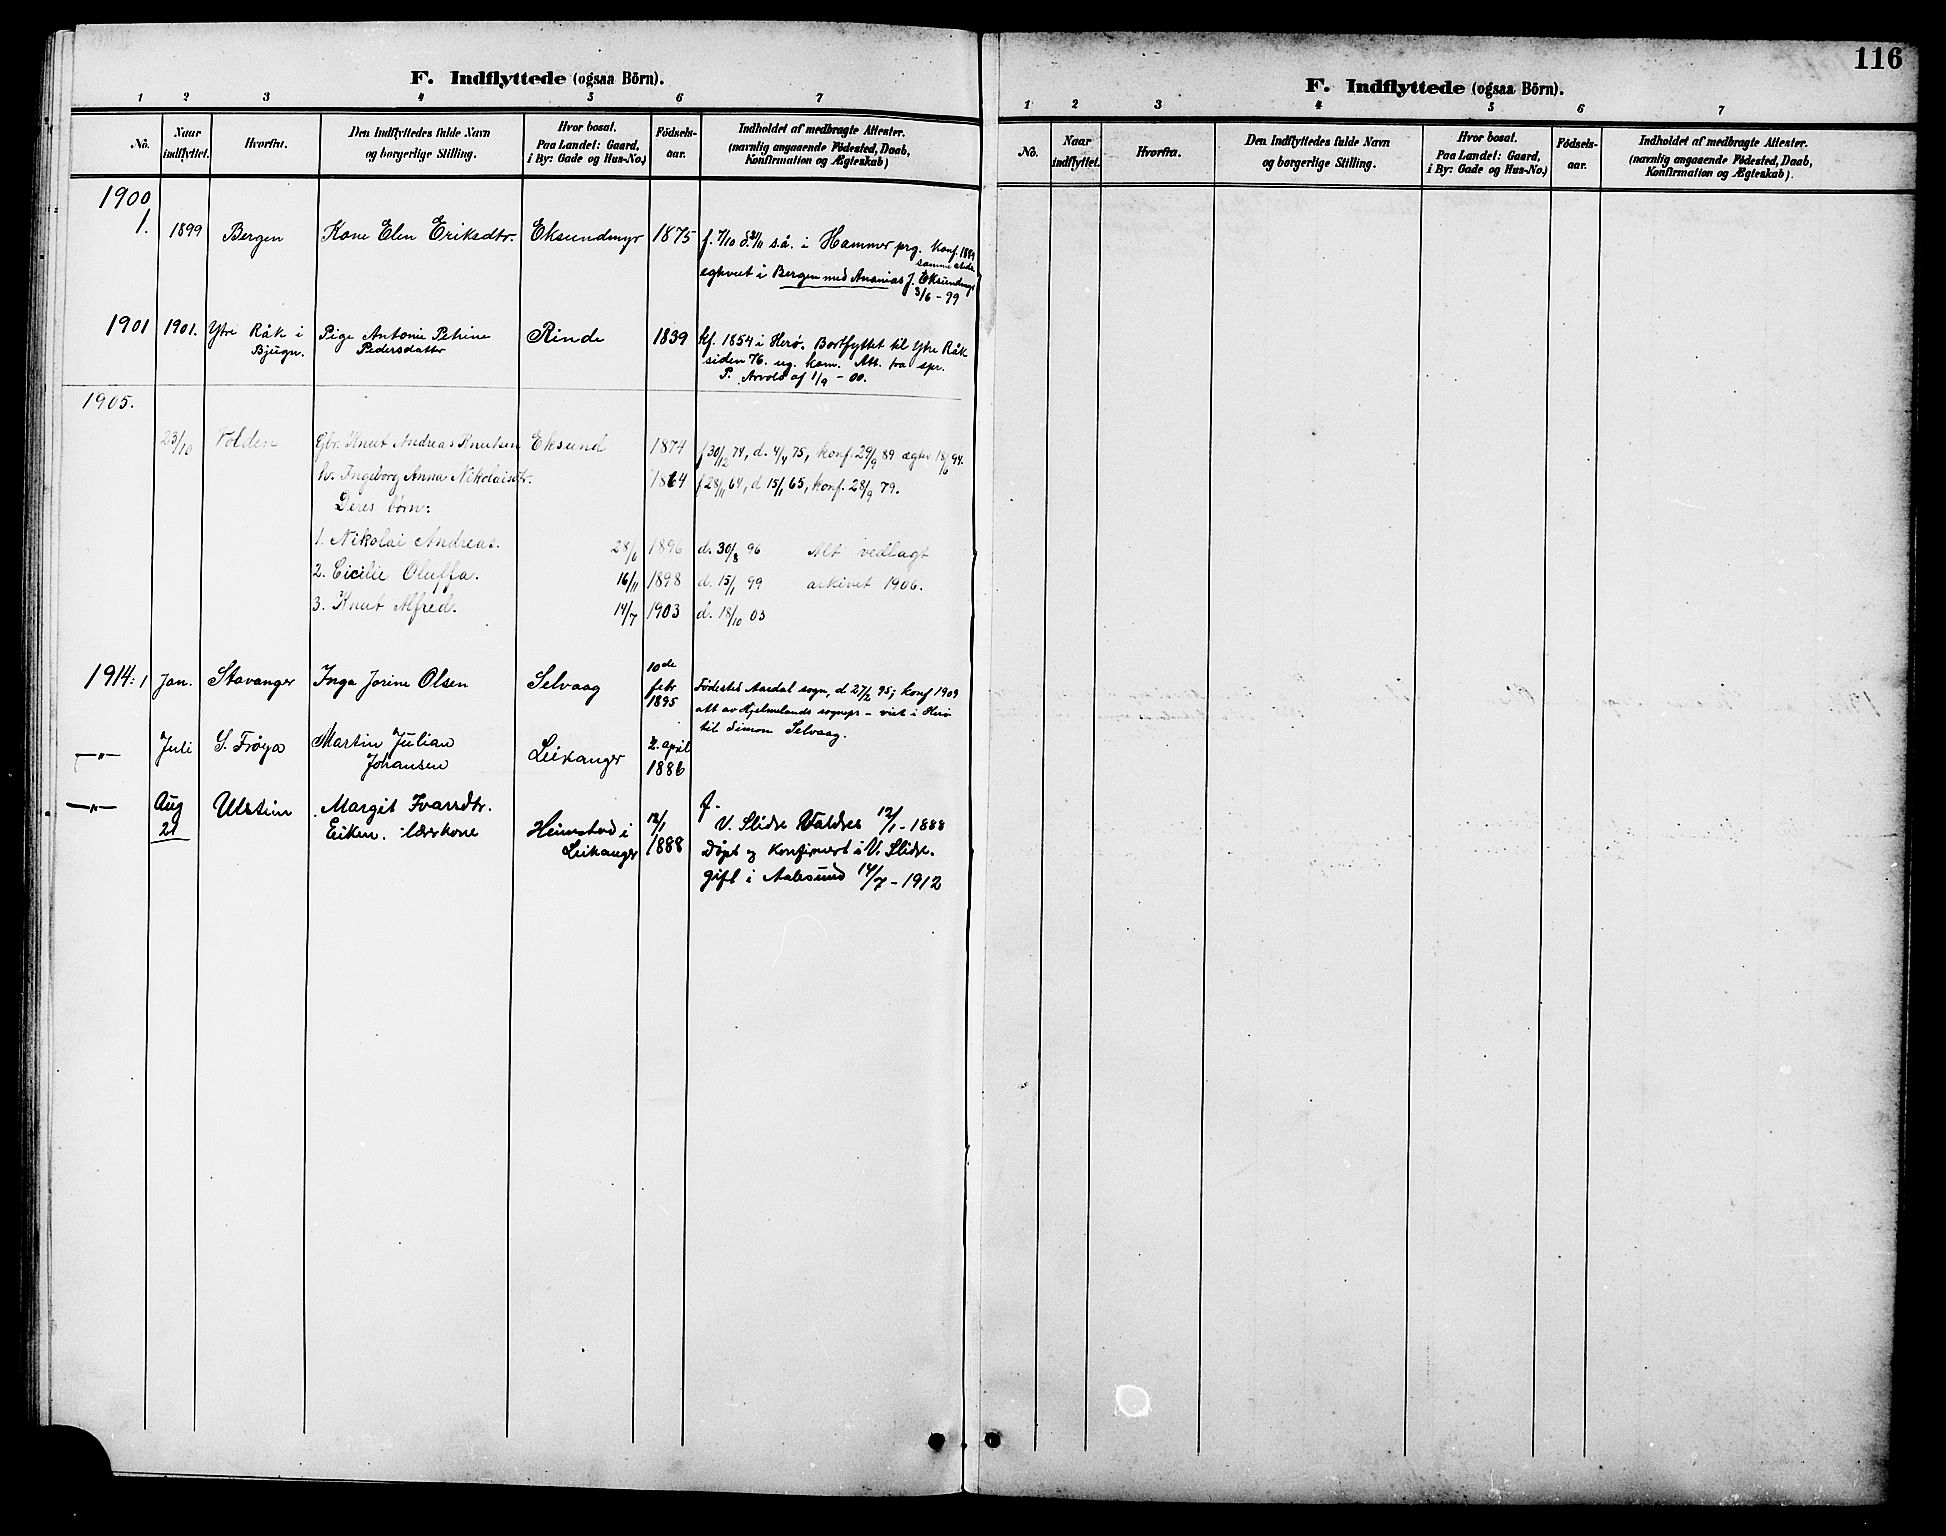 F. Indflyttede (ogsaa Börn).
1 2 3 4 5 6 7
No. Naar indflyttet. Hvorfra. Den Indflyttedes fulde Navn og borgerlige Stilling. Hvor bosat. Paa Landet: Gaard, i By: Gade og Hus-No.) Fødsels-aar. Indholdet af medbragte Attester. (navnlig angaaende Fødested, Daab, Konfirmation og Ægteskab)
1900
1. 1899 Bergen Kone Elen Eriksdtr. Eksundmyr 1875 f. 7/10 d. 21/11 s.å. i Hammer prg. Konf. 1889
samme sted
egtviet i Bergen med Ananias J. Eksundmyr
3/6 - 99
1901 1901. Ytre Råk i Bjugn. Pige Antonie Petrine Pedersdatter Rinde 1839 kf. 1854 i Herö. Bortflyttet til Ytre Råk
siden 76. ug. kom. Att. fra spr.
P. Arvold af 1/9 - 00.
1905.
23/10 Volden Gbr. Knut Andreas Knutsen Eksund 1874 f 30/12 74, d. 4/4 75, konf. 29/9 89 ægtev. 18/6 94.
h. Ingeborg Anna Nikolaisdtr. 1864 f 28/11 64, d 15/1 65, konf. 28/9 79.
Deres børn:
1. Nikolai Andreas. 28/6 1896 d. 30/8 96 Alt vedlagt
2. Cicilie Oluffa. 16/11 1898 d. 15/1 99 arkivet 1906.
3. Knut Alfred. 14/7 1903 d. 18/10 03
1914: 1 Jan. Stavanger Inga Jorine Olsen Selvaag 10de febr 1895 Fødested Aardal sogn, d 27/2 95; konf 1909
att av Hjelmelands sognepr - viet i Herö
til Simon Selvaag.
—"— Juli S. Frøya Martin Julian Johansen Leikanger 2. april 1886
—"— Aug 21 Ulstein Margit Ivarsdtr. Eiken. lærerkone Heimstad i Leikanger 12/1 1888 f.
V. Slidre Valdres 12/1 - 1888
Døpt og konfirmert i V. Slidre.
gift i Aalesund 14/7 - 1912
116
F. Indflyttede (ogsaa Börn).
1 2 3 4 5 6 7
No. Naar indflyttet. Hvorfra. Den Indflyttedes fulde Navn og borgerlige Stilling. Hvor bosat. Paa Landet: Gaard, i By: Gade og Hus-No.) Fødsels-aar. Indholdet af medbragte Attester. (navnlig angaaende Fødested, Daab, Konfirmation og Ægteskab).